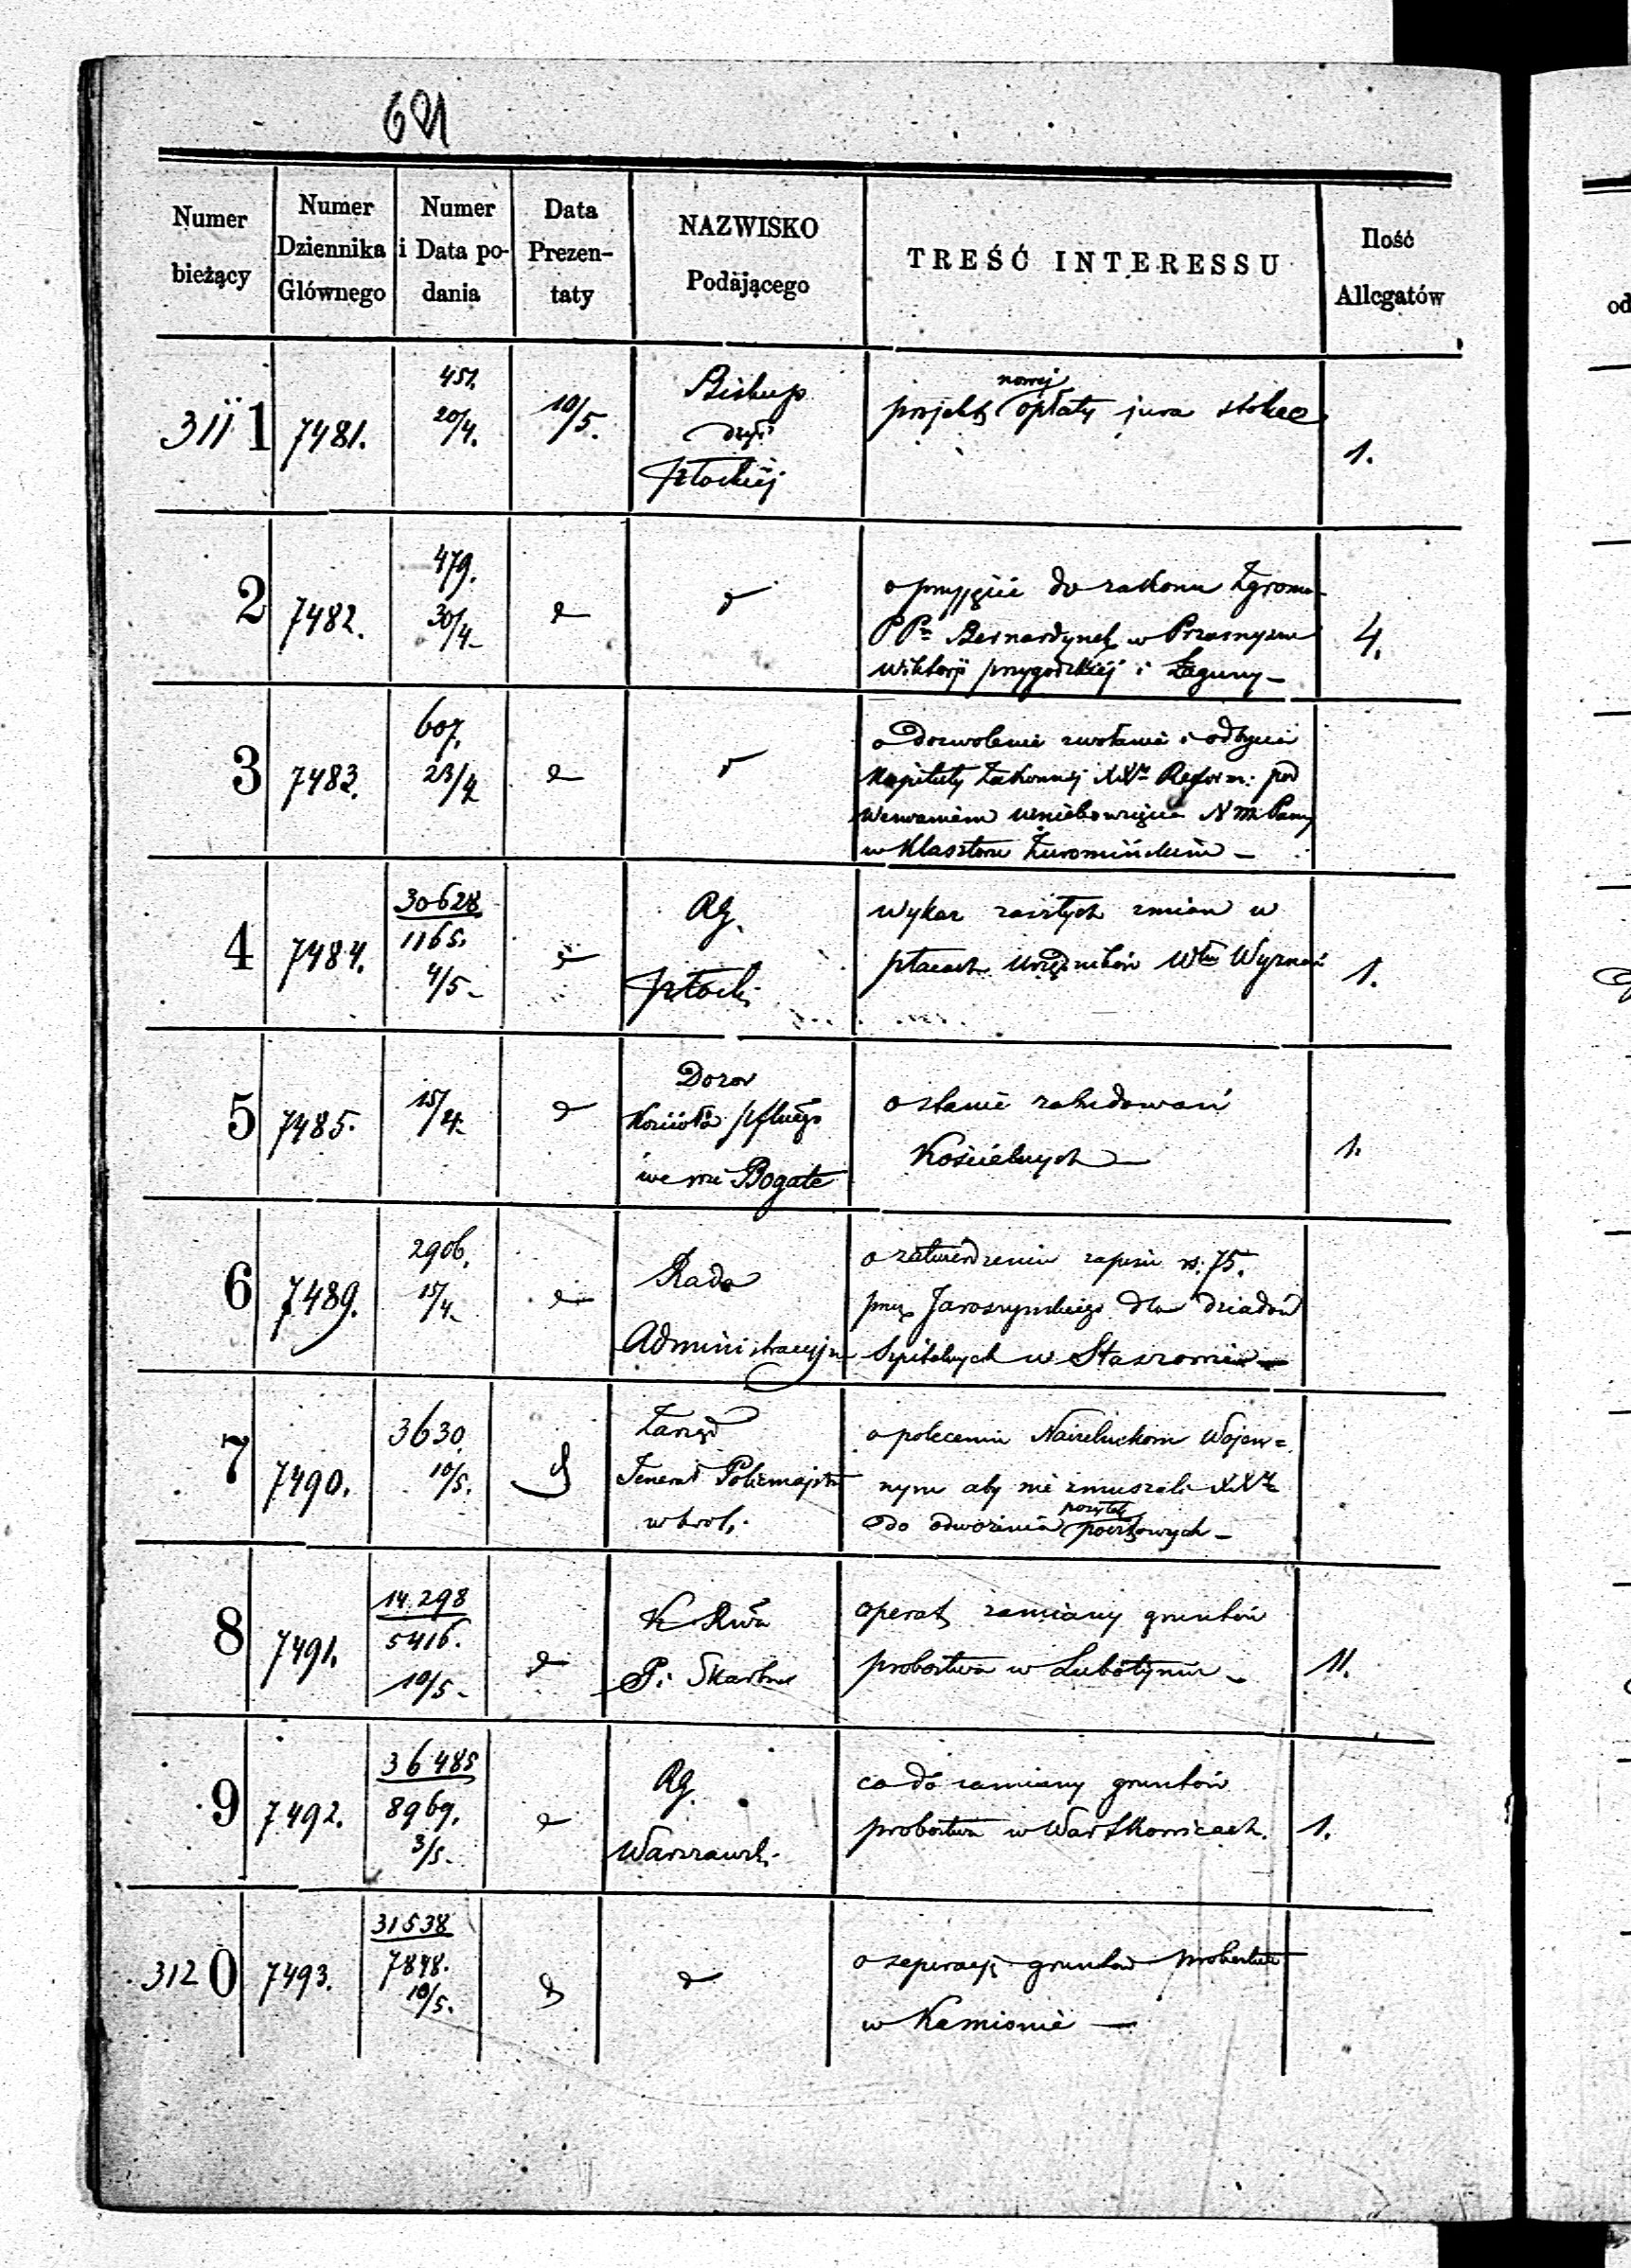 621
Numer bieżący
Numer Dziennika Głównego
Numer i Data podania
Data Prezentaty
NAZWISKO Podającego
TREŚĆ INTERESSU
Ilość Allegatów
3111
7481.
451.
20/4.
10/5.
Biskup
Płockiej
nowej
projekt opłaty jura stolae
1.
2
7482.
479.
30/4.
o przyjęcie do zakonu Zgrom
PPn Bernardynek w Przasnyszu
Wiktorji Przygodzkiej i Łaguny
4.
3
7483.
607.
23/4
o dozwolenie zwołania i odbycia
Kapituły Zakonnej XXży Reform: pod
wezwaniem Wniebowzięcia N M Panny
w Klasztorze Żuromińskim
4
7484.
30628
1165.
4/5
RG.
Płocki
wykaz zaszłych zmian w
płacach Urzędników Włu Wyznań
1.
5
7485.
15/4.
Dozor
Kościoła
we wsi Bogate
o stanie zabudowań
Kościelnych
1.
6
7489.
2906.
15/4.
Rada
Administracyjna
o zatwierdzeniu zapisu rs. 75.
przez Jaroszyńskiego dla dziadów
Szpitalnych w
7
7490.
3630.
10/5.
Zarząd
Jenerał Policmajstra
w Król.
o poleceniu Naczelnikom Wojen=
nym aby nie zmuszali XXży
do odwożenia pocztowych
8
7491.
14.298
5416.
10/5
K Rwa
P. i Skarbu
operat zamiany gruntów
probostwa w Lubotyniu
11.
9
7492.
36485
8969.
3/5
RG.
Warszawski
co do zamiany gruntów
probostwa w Wartkowicach.
1.
3120
7493.
31538
7848.
10/5.
o separacji gruntów probostwa
w Kamionie
od